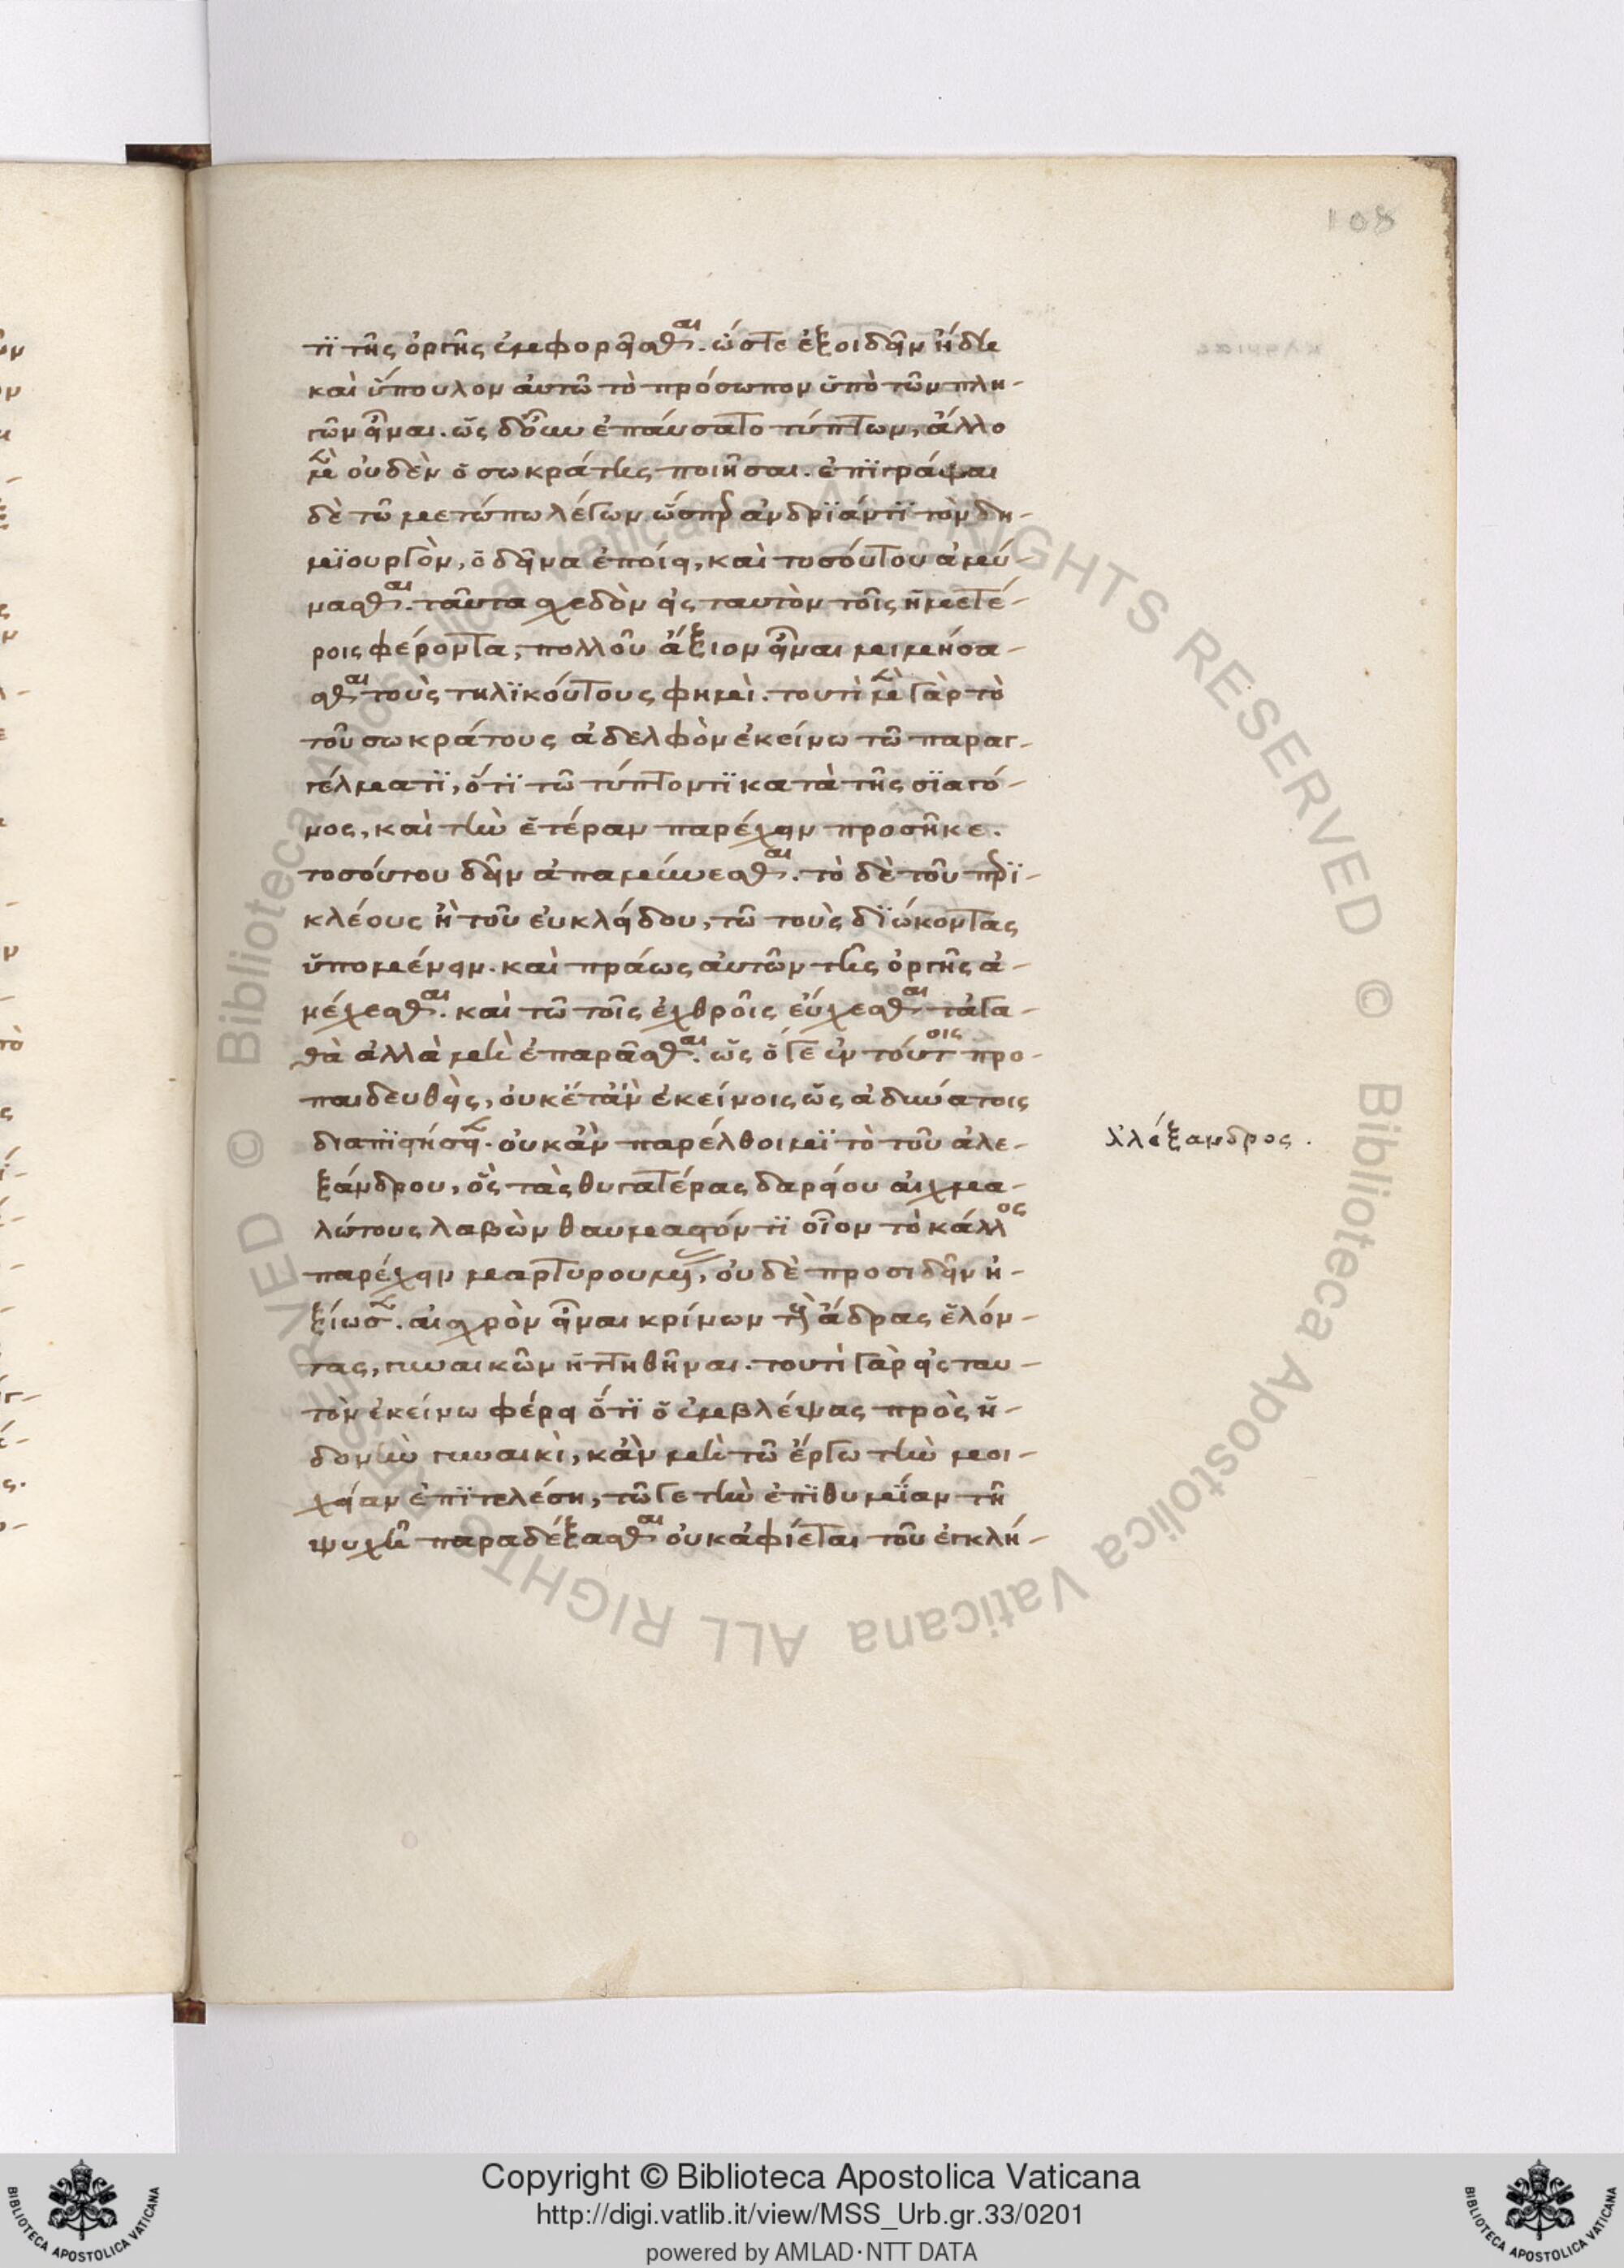 108
τι τῆς ὀργῆς ἐμφορεῖσθαι. ὥστε ἐξοιδεῖν ἤδη
καὶ ὕπουλον αὐτῶ τὸ πρόσωπον ὑπὸ τῶν πλη-
γῶν εἶναι. ὡς δ' οὖν ἐπαύσατο τύπτων, ἄλλο
μὲν οὐδὲν ὁ σωκράτης ποιῆσαι. ἐπιγράψαι
δὲ τῶ μετώπω λέγων ὥσπερ ἀνδριάντι τὸν δη-
μιουργὸν, ὁ δεῖνα ἐποίει, καὶ τοσούτου ἀμύ-
νασθαι. ταῦτα σχεδὸν εἰς ταυτὸν τοῖς ἡμετέ-
ροις φέροντα, πολλοῦ ἄξιον εἶναι μιμήσα-
σθαι τοὺς τηλικούτους φημὶ. τουτὶ μὲν γὰρ τὸ
τοῦ σωκράτους ἀδελφὸν ἐκείνω τῶ παραγ-
γέλματι, ὅτι τῶ τύπτοντι κατὰ τῆς σιαγό-
νος, καὶ τὴν ἑτέραν παρέχειν προσῆκε.
τοσούτου δεῖν ἀπαμύνεσθαι. τὸ δὲ τοῦ περι-
κλέους ἢ τοῦ εὐκλείδου, τῶ τοὺς διώκοντας
ὑπομένειν. καὶ πράως αὐτῶν τῆς ὀργῆς ἀ-
νέχεσθαι. καὶ τῶ τοῖς ἐχθροῖς εὔχεσθαι τἀγα-
θὰ ἀλλὰ μὴ ἐπαρᾶσθαι. ὡς ὅγε ἐν τούτοις προ-
παιδευθεὶς, οὐκέτ' ἂν ἐκείνοις ὡς ἀδυνάτοις
διαπιστήσειεν. οὐκ ἂν παρέλθοιμι τὸ τοῦ ἀλε-
ξάνδρου, ὃς τὰς θυγατέρας δαρείου αἰχμα-
λώτους λαβὼν θαυμαστόν τι οἷον τὸ κάλλος
παρέχειν μαρτυρουμένας, οὐδὲ προσιδεῖν ἠ-
ξίωσεν. αἰσχρὸν εἶναι κρίνων τὸν ἄνδρας ἑλόν-
τας, γυναικῶν ἡττηθῆναι. τουτὶ γὰρ εἰς ταυ-
τὸν ἐκείνω φέρει ὅτι ὁ ἐμβλέψας πρὸς ἡ-
δονὴν γυναικὶ, κἂν μὴ τῶ ἔργω τὴν μοι-
χείαν ἐπιτελέση, τῶ γε τὴν ἐπιθυμίαν τῆ
ψυχῆ παραδέξασθαι οὐκ ἀφίεται τοῦ ἐγκλή-
Ἀλέξανδρος.
Copyright © Biblioteca Apostolica Vaticana
http://digi.vatlib.it/view/MSS_Urb.gr.33/0201
powered by AMLAD·NTT DATA
BIBLIOTECA APOSTOLICA VATICANA
BIBLIOTECA APOSTOLICA VATICANA
© Biblioteca Apostolica Vaticana ALL RIGHTS RESERVED © Biblioteca Apostolica Vaticana ALL RIGHTS RESERVED